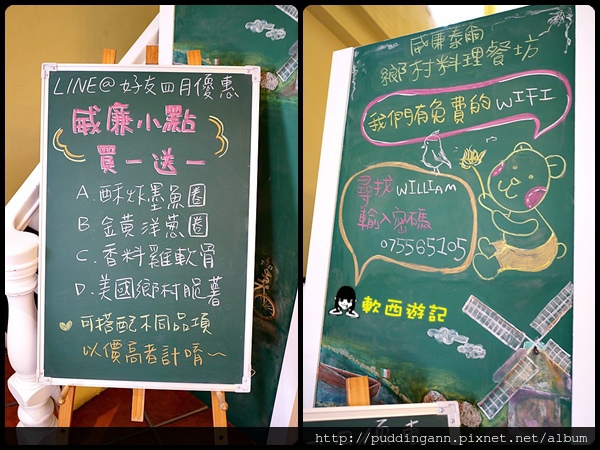 LINE@好友四月優惠
威廉小點
買一送一
A.酥炸墨魚圈
B.金黃洋蔥圈
C.香料雞軟骨
D.美國鄉村脆薯
可搭配不同品項
以價高者計唷~
威廉泰爾
鄉村料理餐坊
我們有免費的WIFI
尋找WILLIAM
輸入密碼
075565105
軟西遊記
http://puddingann.pixnet.net/album